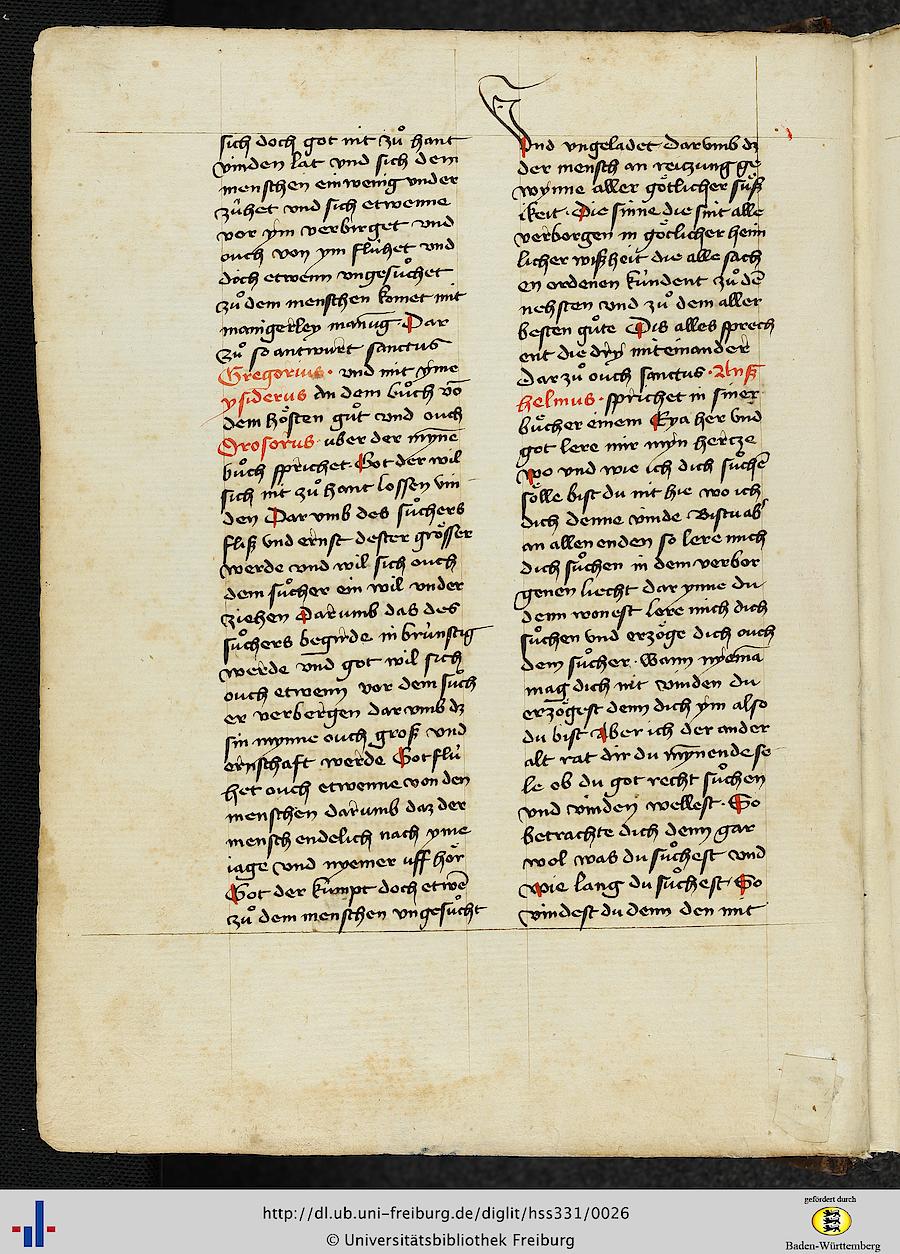 sich doch got nit zuͦ hant
vinden lat vnd sich dem
menschen ein wenig vnder
zúhet vnd sich etwenne
vor ym verbirget vnd
ouch von ym flúhet vnd
doch etwenn vngesuͦchet
zuͦ dem menschen komet mit
manigerley manūg · Dar
zuͦ so antwurt sanctus
Gregorius · vnd mit yme
ysiderus an dem buͦch vō
dem hösten guͦt vnd ouch
Orosorus · vber der mynē
buͦch sprichet · Got der wil
sich nit zuͦ hant lossen vin
den Dar vmb des suͦchers
fliß vnd ernst dester grösser
werde vnd wil sich ouch
dem suͦcher ein wil vnder
ziehen Darumb das des
suͦchers begirde inbrúnstig
werde vnd got wil sich
ouch etwenn vor dem suͦch
er verbergen dar vmb dz
sin mynne ouch groß vnd
ernschaft werde Got flú
het ouch etwenne von den
menschen darumb daz der
mensch endelich nach yme
iage vnd nyemer uff hör
Got der kumpt doch etwē
zuͦ dem menschen vngesuͦcht
Vnd vngeladet darumb dz
der mensch an reizung ge
wynne aller götlicher süß
ikeit · Die sinne die sint alle
verborgen in götlicher heim
licher wißheit die alle sach
en ordenen kúndent zuͦ dē
nehsten vnd zuͦ dem aller
besten guͦte Dis alles sprech
ent die dry miteinander
dar zuͦ ouch sanctus · Anß
helmus · sprichet in siner
buͤcher einem Eya her vnd
got lere mir myn hercze
wo vnd wie ich dich suͦchē
sölle bist du nit hie wo ich
dich denne vinde Bistu ab
an allen enden so lere mich
dich suͦchen in dem verbor
genen liecht dar ynne du
denn wonest lere mich dich
suͦchen vnd erzöge dich ouch
dem suͦcher · Wann nyemā
mag dich nit vinden du
erzögest denn dich ym also
du bist Aber ich der ander
alt rat dir du mynende se
le ob du got recht suͦchen
vnd vinden wellest · So
betrachte dich denn gar
wol was du suͦchest vnd
wie lang du suͦchest · So
vindest du denn den mit
http://dl.ub.uni-freiburg.de/diglit/hss331/0026
© Universitätsbibliothek Freiburg
gefördert durch
Baden-Württemberg